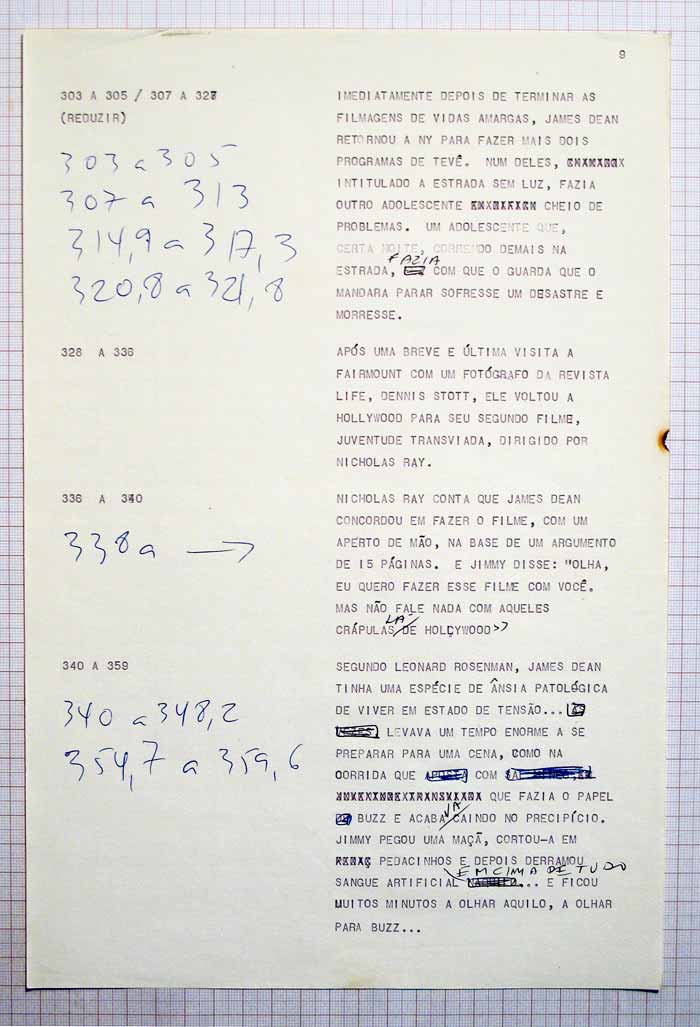 9
303 A 305 / 307 A 327
(REDUZIR)
303 a 305
307 a 313
314,9 a 317,3
320,8 a 321,8
IMEDIATAMENTE DEPOIS DE TERMINAR AS
FILMAGENS DE VIDAS AMARGAS, JAMES DEAN
RETORNOU A NY PARA FAZER MAIS DOIS
PROGRAMAS DE TEVÊ. NUM DELES,
INTITULADO A ESTRADA SEM LUZ, FAZIA
OUTRO ADOLESCENTE CHEIO DE
PROBLEMAS. UM ADOLESCENTE QUE,
CERTA NOITE, CORRENDO DEMAIS NA
ESTRADA, FAZIA COM QUE O GUARDA QUE O
MANDARA PARAR SOFRESSE UM DESASTRE E
MORRESSE.
328 A 336
APÓS UMA BREVE E ÚLTIMA VISITA A
FAIRMOUNT COM UM FOTÓGRAFO DA REVISTA
LIFE, DENNIS STOTT, ELE VOLTOU A
HOLLYWOOD PARA SEU SEGUNDO FILME,
JUVENTUDE TRANSVIADA, DIRIGIDO POR
NICHOLAS RAY.
336 A 340
338 a →
NICHOLAS RAY CONTA QUE JAMES DEAN
CONCORDOU EM FAZER O FILME, COM UM
APERTO DE MÃO, NA BASE DE UM ARGUMENTO
DE 15 PÁGINAS. E JIMMY DISSE: "OLHA,
EU QUERO FAZER ESSE FILME COM VOCÊ.
MAS NÃO FALE NADA COM AQUELES
CRÁPULAS LÁ DE HOLLYWOOD>>
340 A 359
340 a 348,2
354,7 a 359,6
SEGUNDO LEONARD ROSENMAN, JAMES DEAN
TINHA UMA ESPÉCIE DE ÂNSIA PATOLÓGICA
DE VIVER EM ESTADO DE TENSÃO...
LEVAVA UM TEMPO ENORME A SE
PREPARAR PARA UMA CENA, COMO NA
CORRIDA QUE COM
QUE FAZIA O PAPEL
BUZZ E ACABAVA CAINDO NO PRECIPÍCIO.
JIMMY PEGOU UMA MAÇÃ, CORTOU-A EM
PEDACINHOS E DEPOIS DERRAMOU
SANGUE ARTIFICIAL EM CIMA DE TUDO... E FICOU
MUITOS MINUTOS A OLHAR AQUILO, A OLHAR
PARA BUZZ...